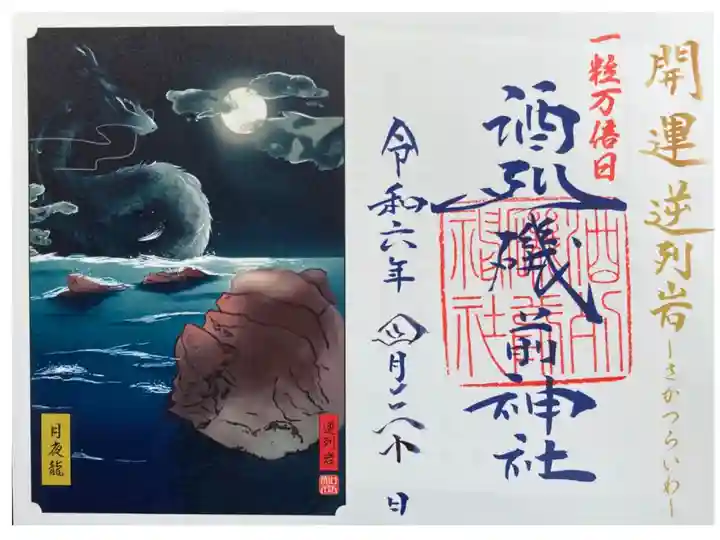 開運逆列岩ーさかつらいわー
一粒万倍日
酒列磯前神社
令和六年 四月 日
逆列岩
月夜龍